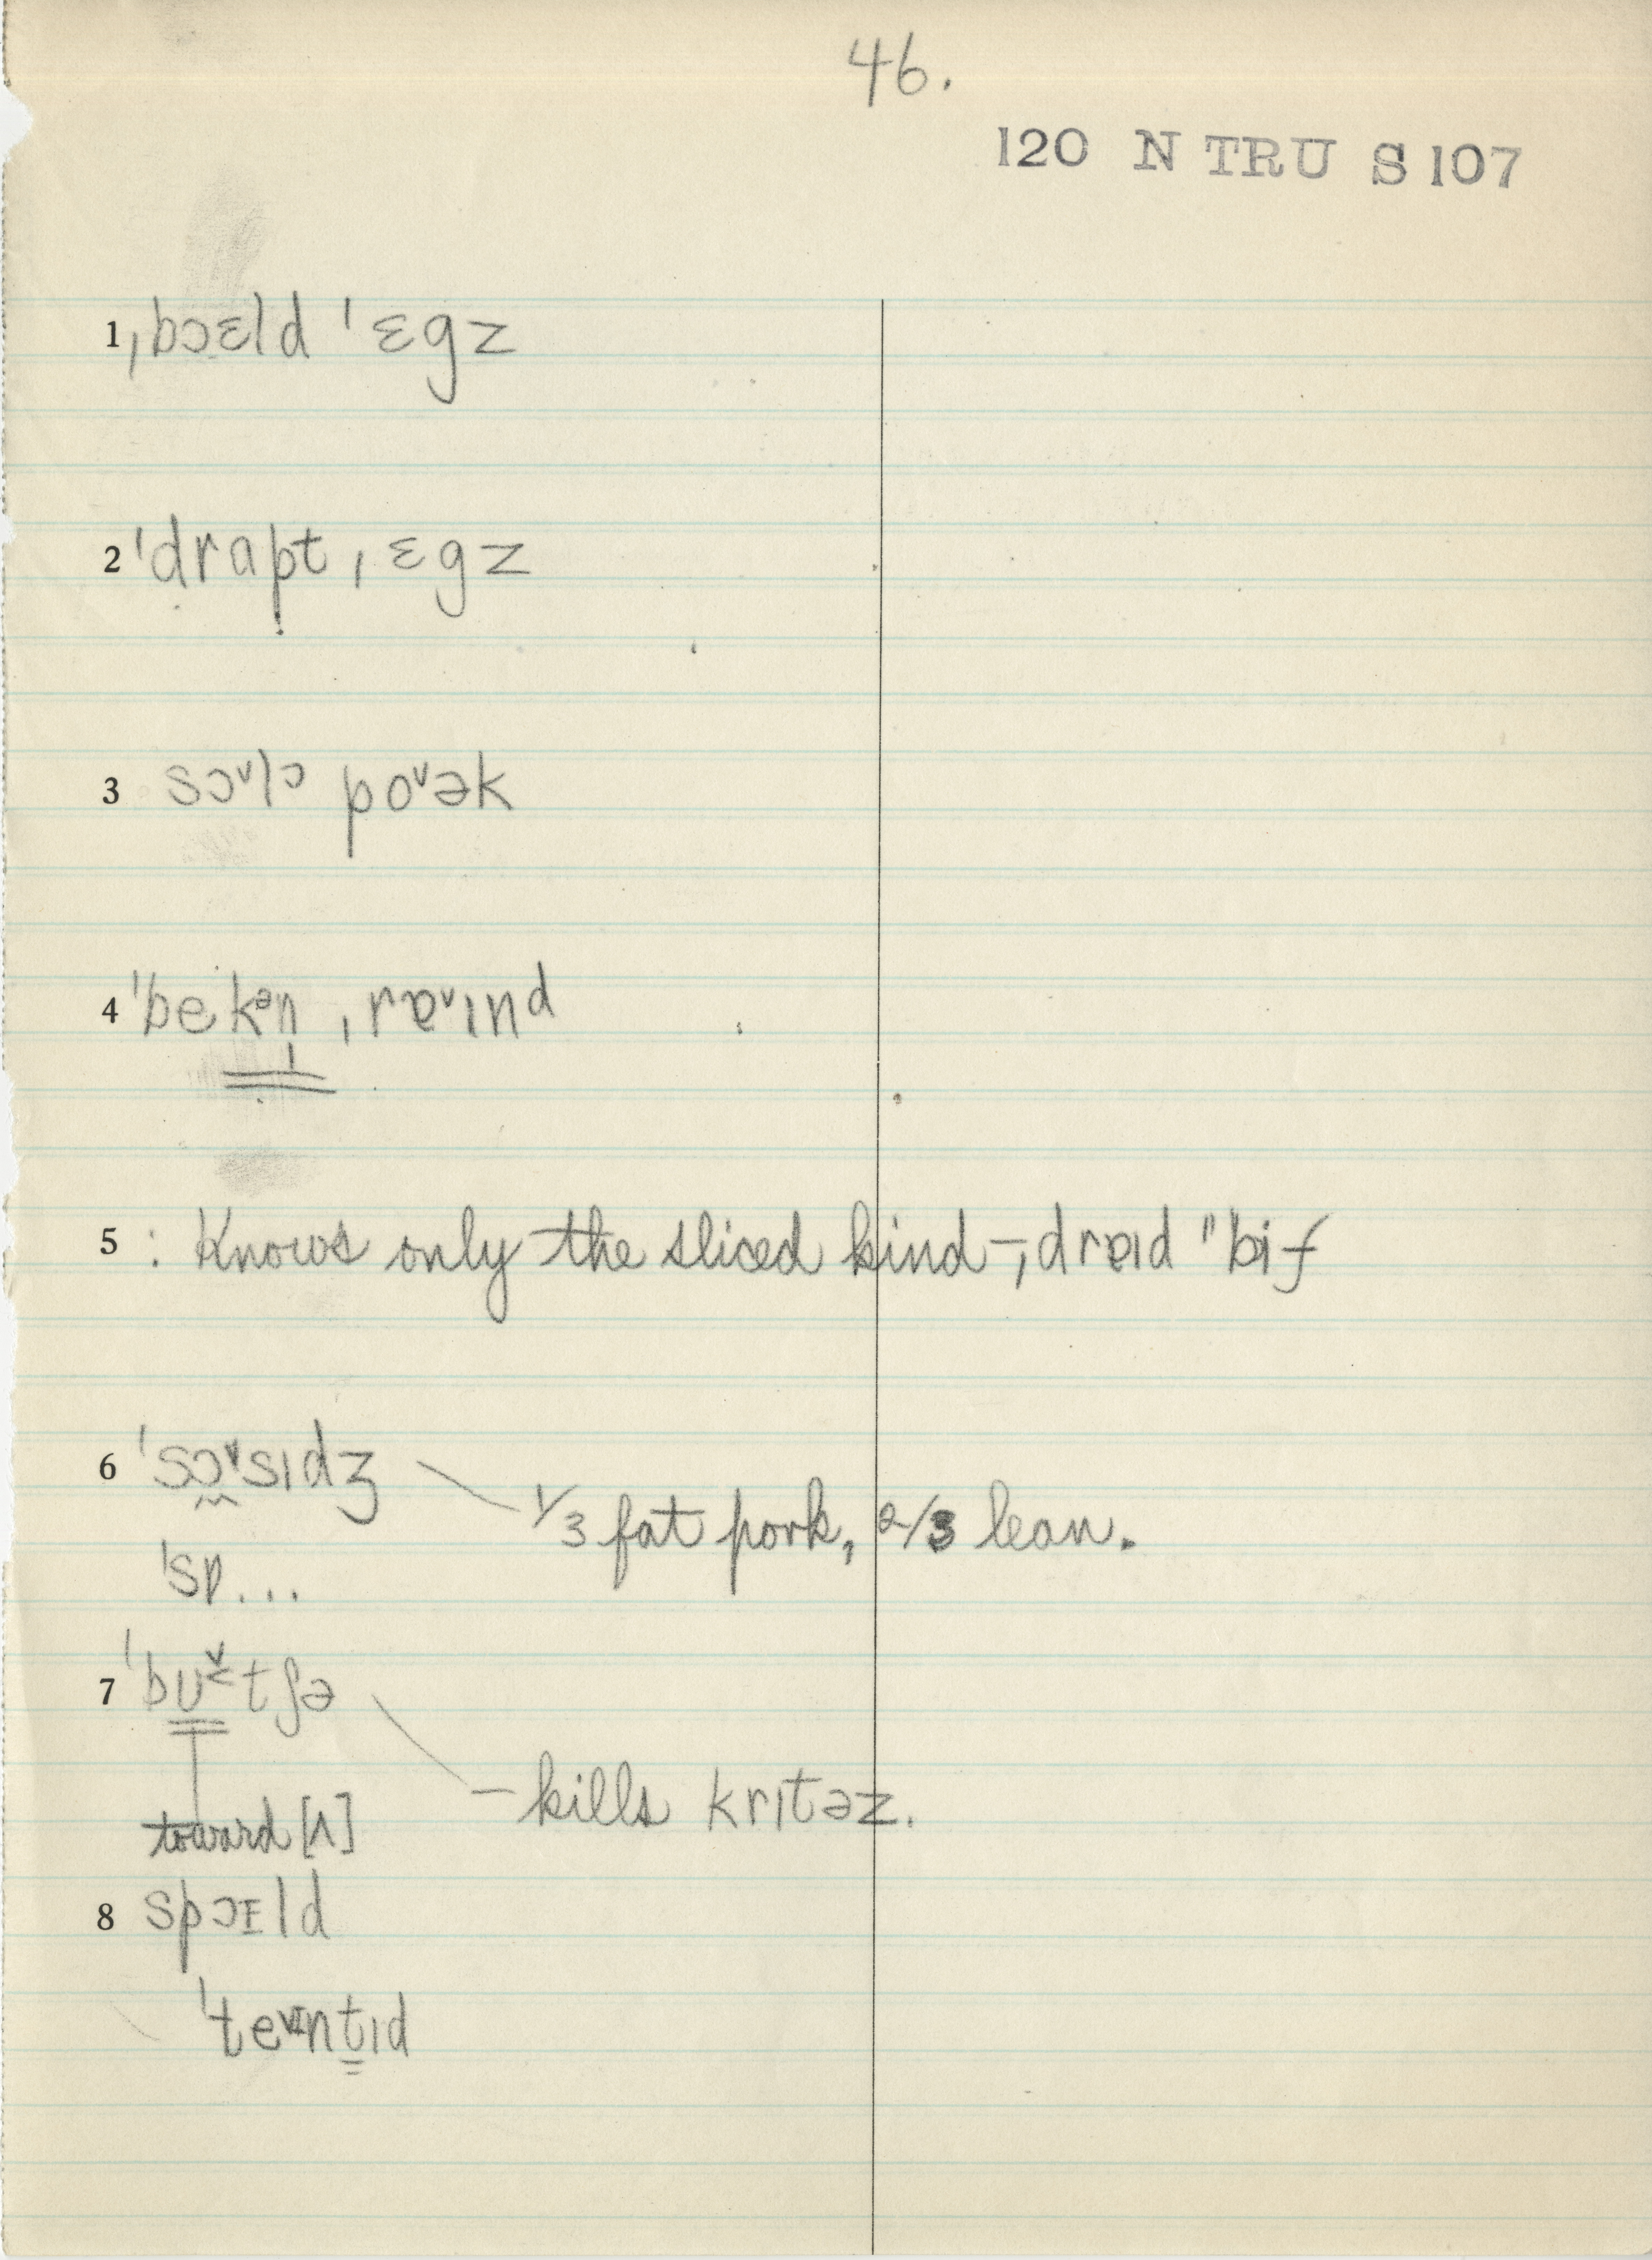 46.
120 N TRU S 107
1 ˌbɔɛld ˈɛgz
2 ˈdrapt ˌɛgz
3 sɔᵛlɔ poᵛək
4 ˈbekᵊn ˌrɐᵛɪnd
5 : Knows only the sliced kind – ˌdrɐɪd "bif
6 ˈsɔᵛsɪdʒ
1/3 fat pork, 2/3 lean.
ˈsɒ...
7 ˈbʊᵛ˂tʃə
– kills krɪtəz.
toward [ʌ]
8 spɔɪld
ˈteᵛɪntɪd